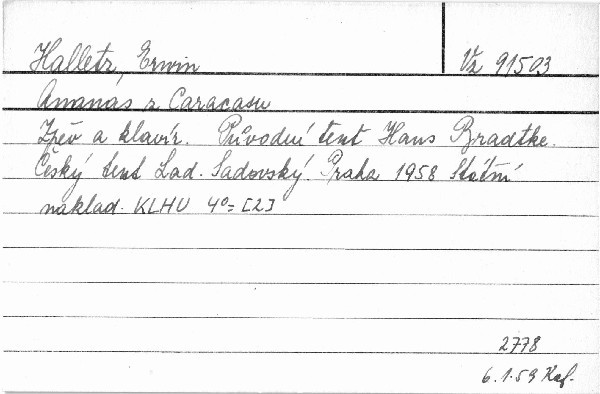 Halletz, Erwin Vz 91503
Ananás z Caracasu
Zpěv a klavír. Původní text Hans Bradtke.
Český text Lad. Sadovský. Praha 1958 Státní
naklad. KLHU 4°= [2]
2778
6.1.59 Kaf.